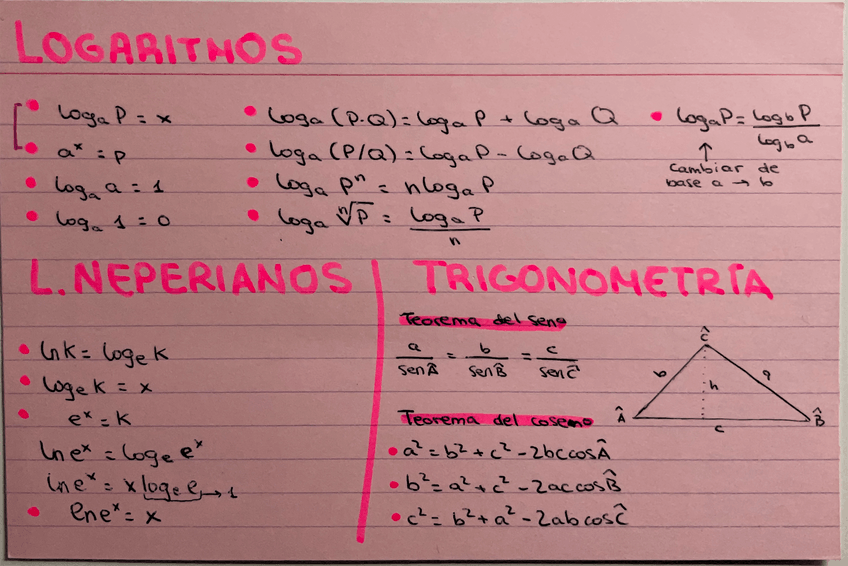 LOGARITMOS
logₐ P = x
aˣ = P
logₐ a = 1
logₐ 1 = 0
logₐ (P·Q) = logₐ P + logₐ Q
logₐ (P/Q) = logₐ P - logₐ Q
logₐ Pⁿ = n logₐ P
logₐ ⁿ√P = logₐ P / n
logₐ P = log_b P / log_b a
↑
Cambiar de
base a → b
L. NEPERIANOS
ln K = logₑ K
logₑ K = x
eˣ = K
ln eˣ = logₑ eˣ
ln eˣ = x logₑ e → 1
ln eˣ = x
TRIGONOMETRÍA
Teorema del seno
a / sen Â = b / sen B̂ = c / sen Ĉ
Ĉ
b
a
h
Â
B̂
c
Teorema del coseno
a² = b² + c² - 2bc cos Â
b² = a² + c² - 2ac cos B̂
c² = b² + a² - 2ab cos Ĉ